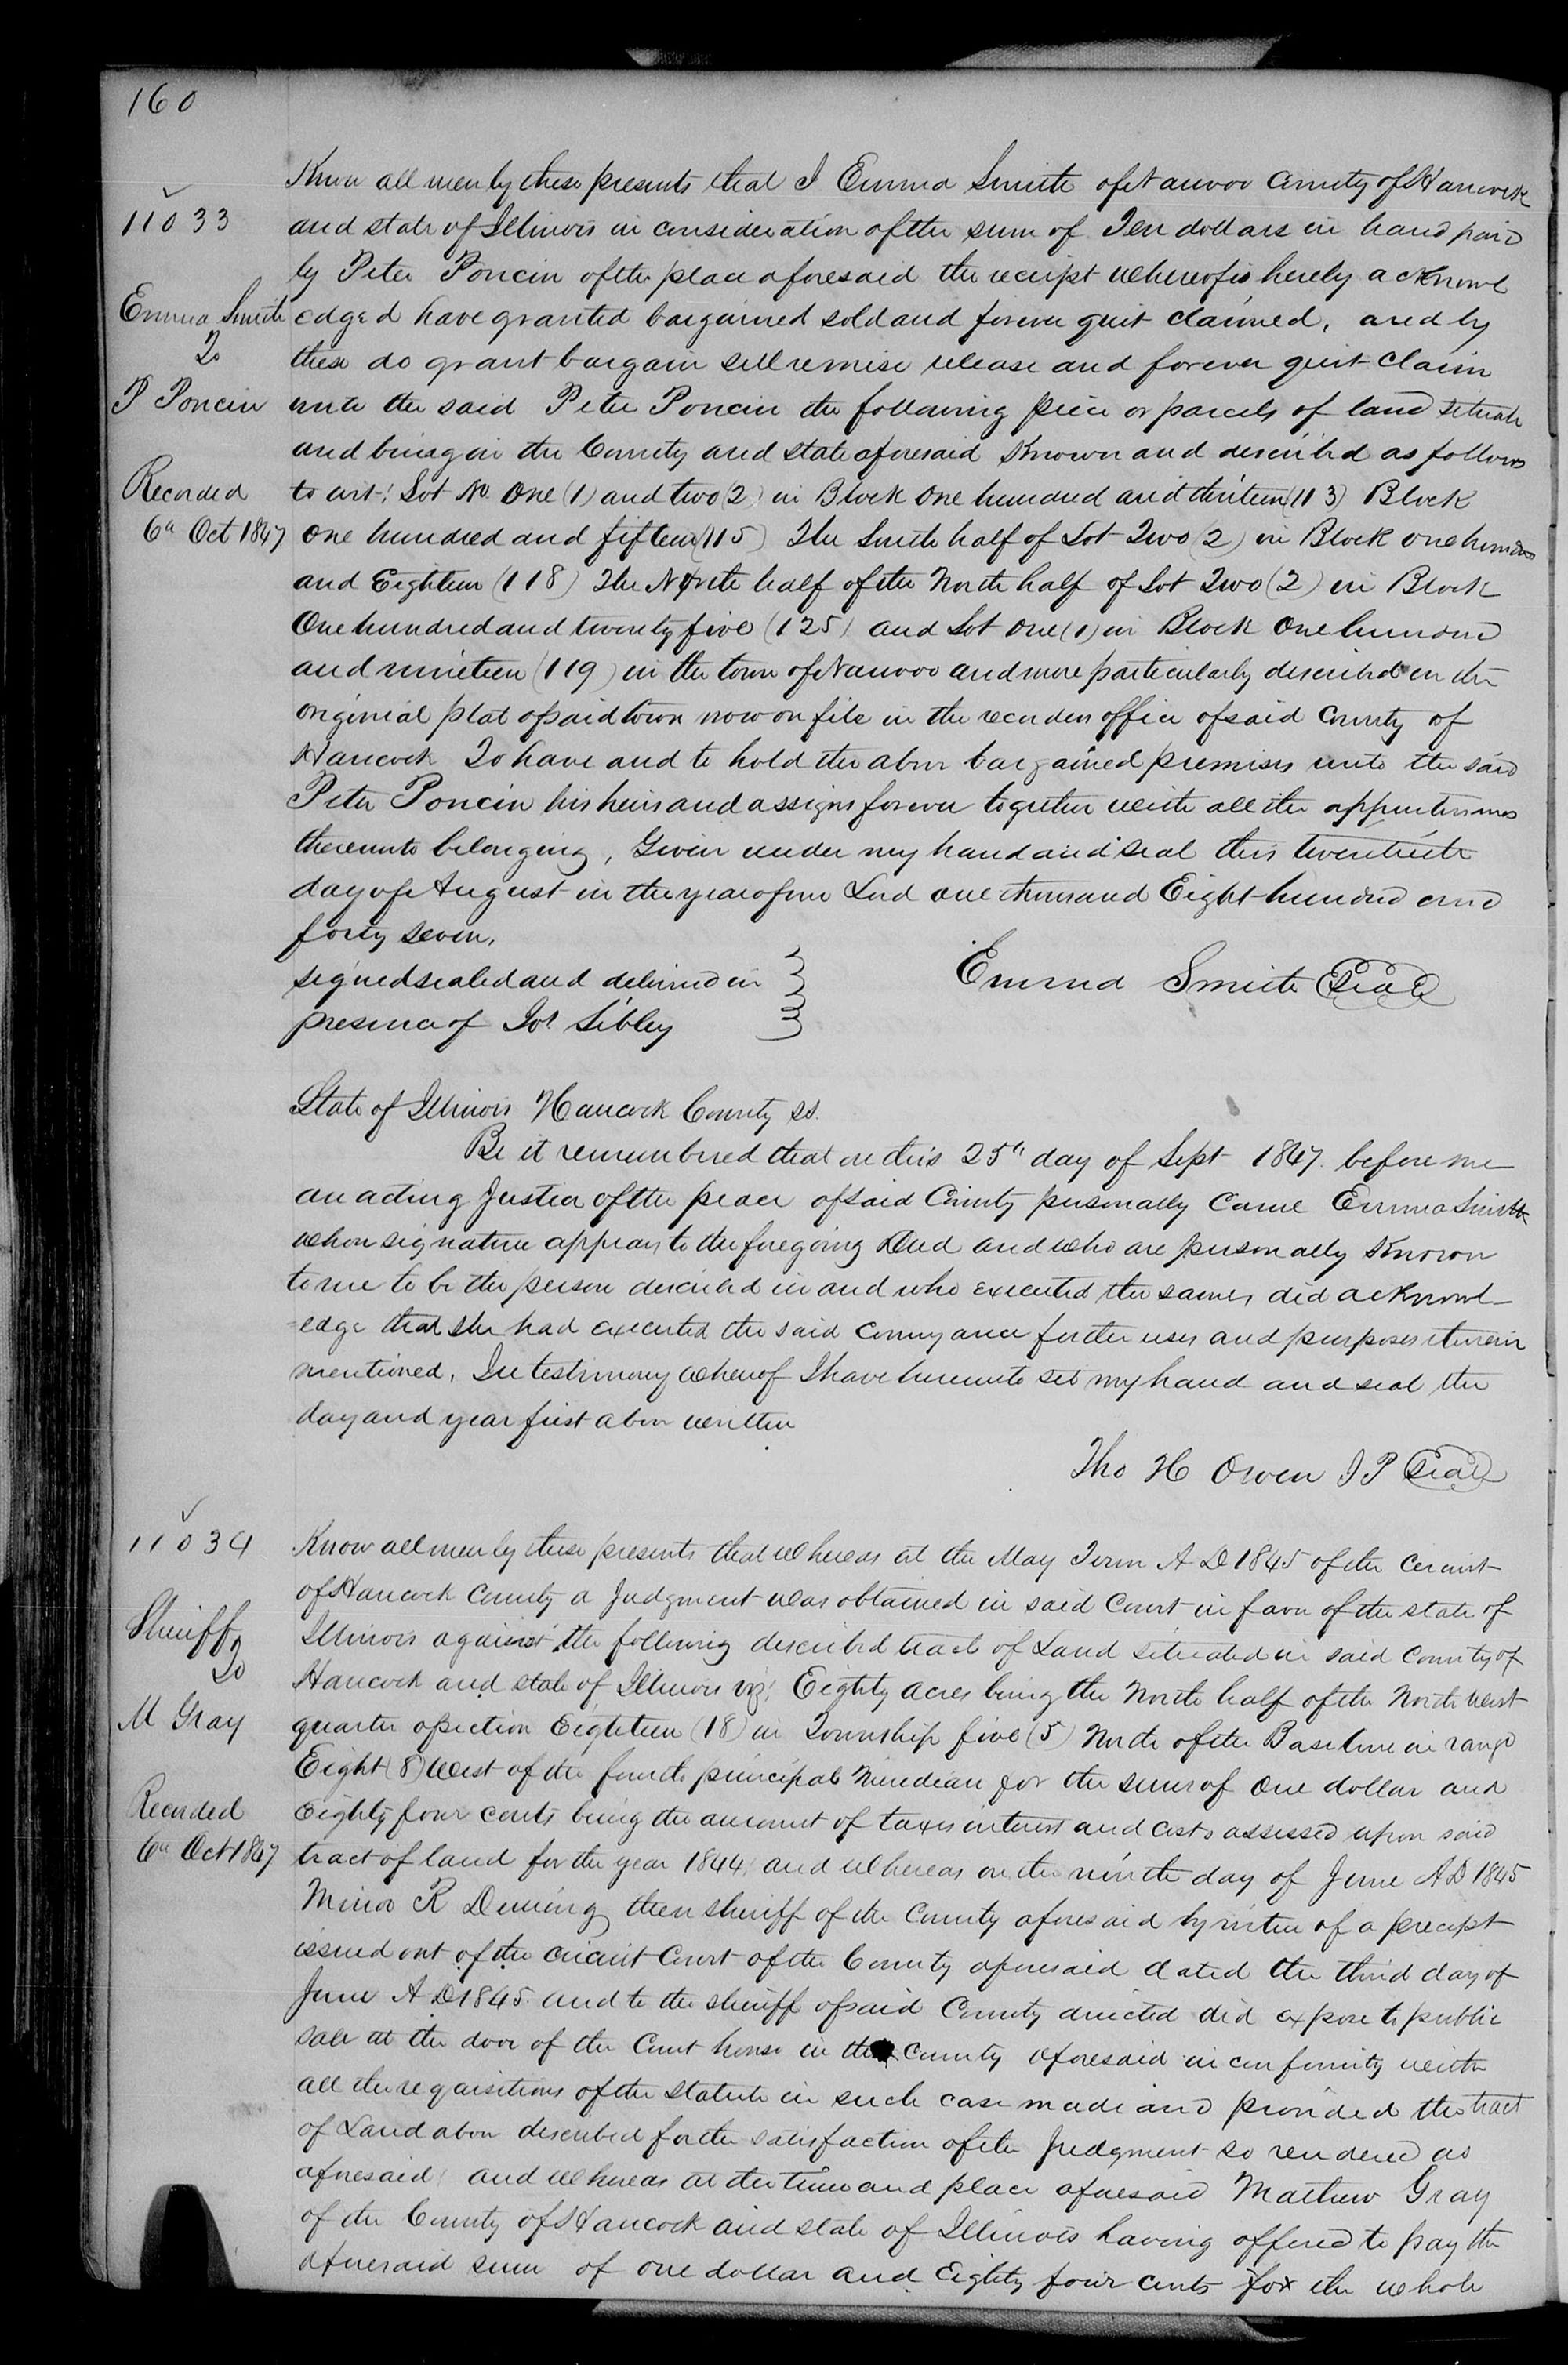 160
11033
Emma Smith
To
P Poncin
Recorded
6th Oct 1847
Know all men by these presents that I Emma Smith of Nauvoo County of Hancock
and state of Illinois in consideration of the sum of Ten dollars in hand paid
by Peter Poncin of the place aforesaid the receipt whereof is hereby acknowl
edged have granted bargained sold and forever quit claimed, and by
these do grant bargain sell remise release and forever quit claim
unto the said Peter Poncin the following piece or parcels of land situate
and being in the County and state aforesaid Known and described as follows
to wit: Lot No One (1) and two (2) in Block One hundred and thirteen (113) Block
One hundred and fifteen (115) The South half of Lot Two (2) in Block one hundred
and Eighteen (118) The North half of the North half of Lot Two (2) in Block
One hundred and twenty five (125) and Lot One (1) in Block One hundred
and nineteen (119) in the town of Nauvoo and more particularly described on the
original plat of said town now on file in the recorders office of said County of
Hancock To have and to hold the above bargained premises unto the said
Peter Poncin his heirs and assigns forever together with all the appurtenances
thereunto belonging, Given under my hand and seal this twentieth
day of August in the year of our Lord one thousand Eight hundred and
forty seven.
signed sealed and delivered in
presence of Jos Sibley
Emma Smith Seal
State of Illinois Hancock County ss.
Be it remembered that on this 25th day of Sept 1847 before me
an acting Justice of the peace of said County personally came Emma Smith
whose signature appears to the foregoing Deed and who are personally Known
to me to be the person described in and who executed the same, did acknowl-
-edge that she had executed the said conveyance for the uses and purposes therein
mentioned, In testimony whereof I have hereunto set my hand and seal the
day and year first above written
Tho H Owen J P Seal
11034
Sheriff
To
M Gray
Recorded
6th Oct 1847
Know all men by these presents that whereas at the May Term A D 1845 of the Circuit
of Hancock County a Judgment was obtained in said Court in favor of the state of
Illinois against the following described tract of Land situated in said County of
Hancock and state of Illinois viz: Eighty acres being the North half of the North West
quarter of section Eighteen (18) in Township five (5) North of the Base line in range
Eight (8) West of the fourth principal Meridian for the sum of One dollar and
Eighty four cents being the amount of taxes interest and costs assessed upon said
tract of land for the year 1844, and whereas on the ninth day of June A D 1845
Minor R Deming then sheriff of the County aforesaid by virtue of a precept
issued out of the circuit Court of the County aforesaid dated the third day of
June A D 1845 and to the sheriff of said County directed did expose to public
sale at the door of the Court house in the County aforesaid in conformity with
all the requisitions of the statute in such case made and provided the tract
of Land above described for the satisfaction of the Judgment so rendered as
aforesaid, and whereas at the time and place aforesaid Mathew Gray
of the County of Hancock and state of Illinois having offered to pay the
aforesaid sum of one dollar and Eighty four cents for the whole